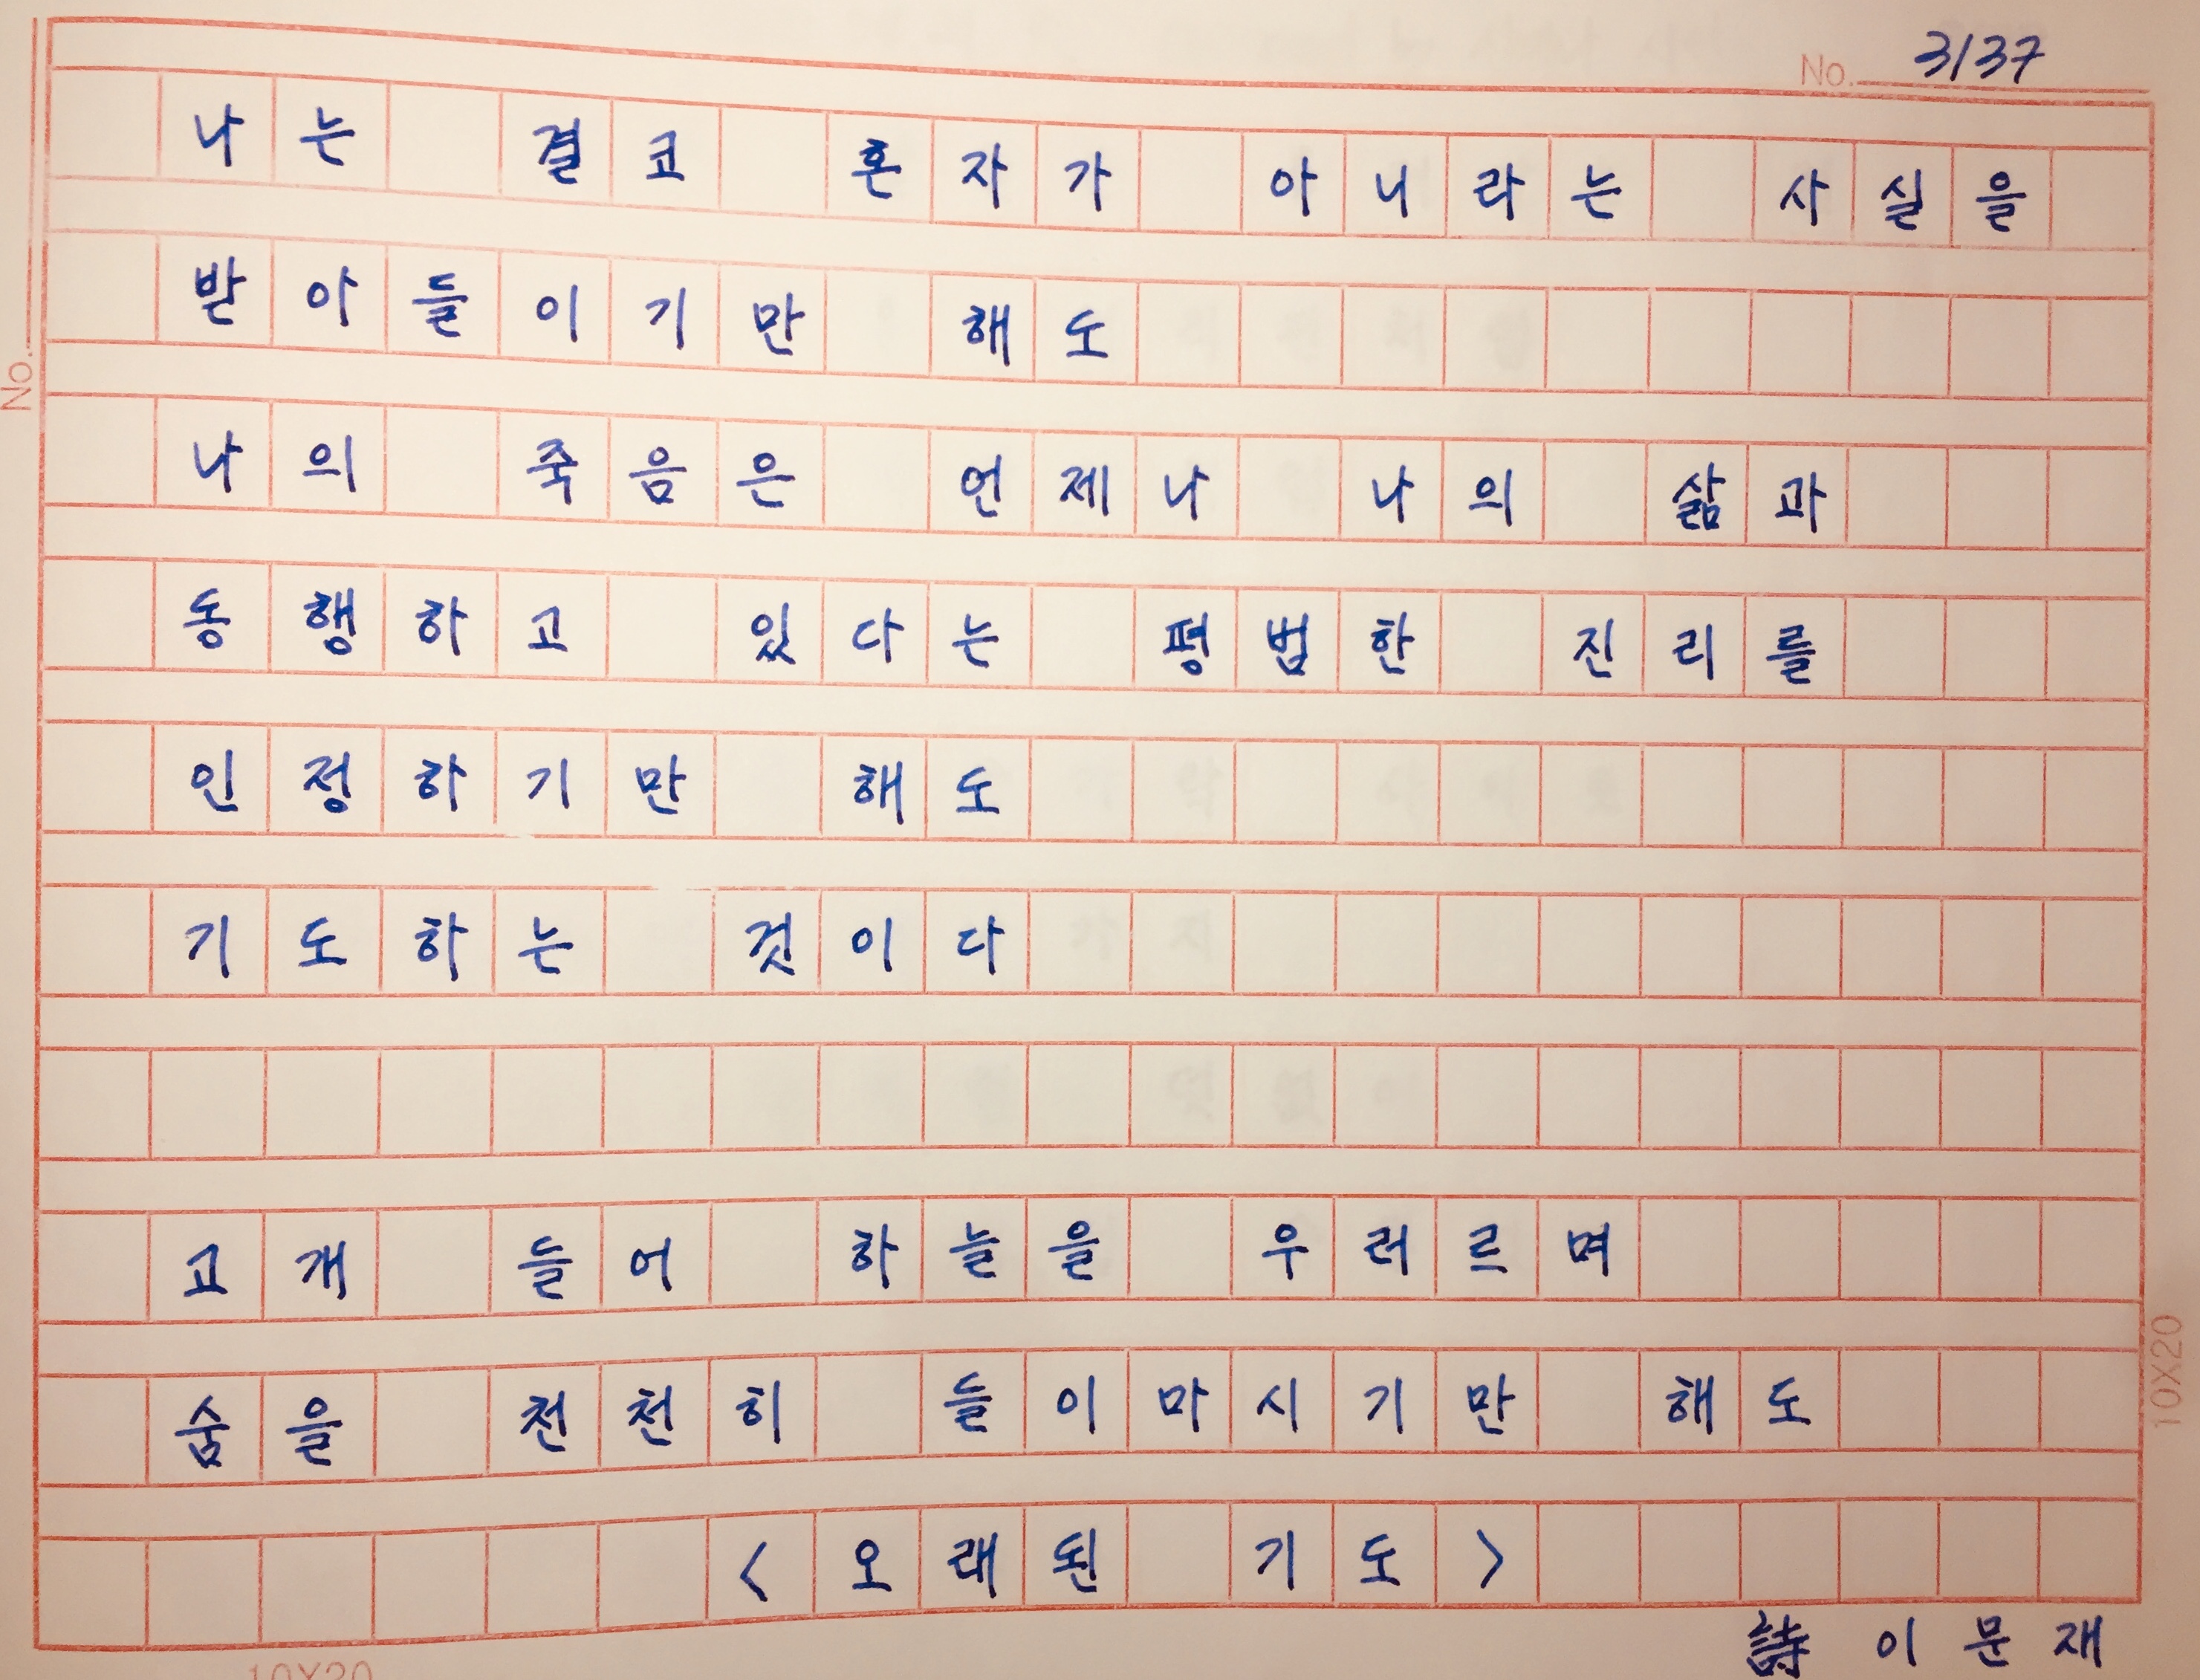 No. 3137
나는 결코 혼자가 아니라는 사실을
받아들이기만 해도
나의 죽음은 언제나 나의 삶과
동행하고 있다는 평범한 진리를
인정하기만 해도
기도하는 것이다
고개 들어 하늘을 우러르며
숨을 천천히 들이마시기만 해도
<오래된 기도>
詩 이문재
No.
10X20
10X20